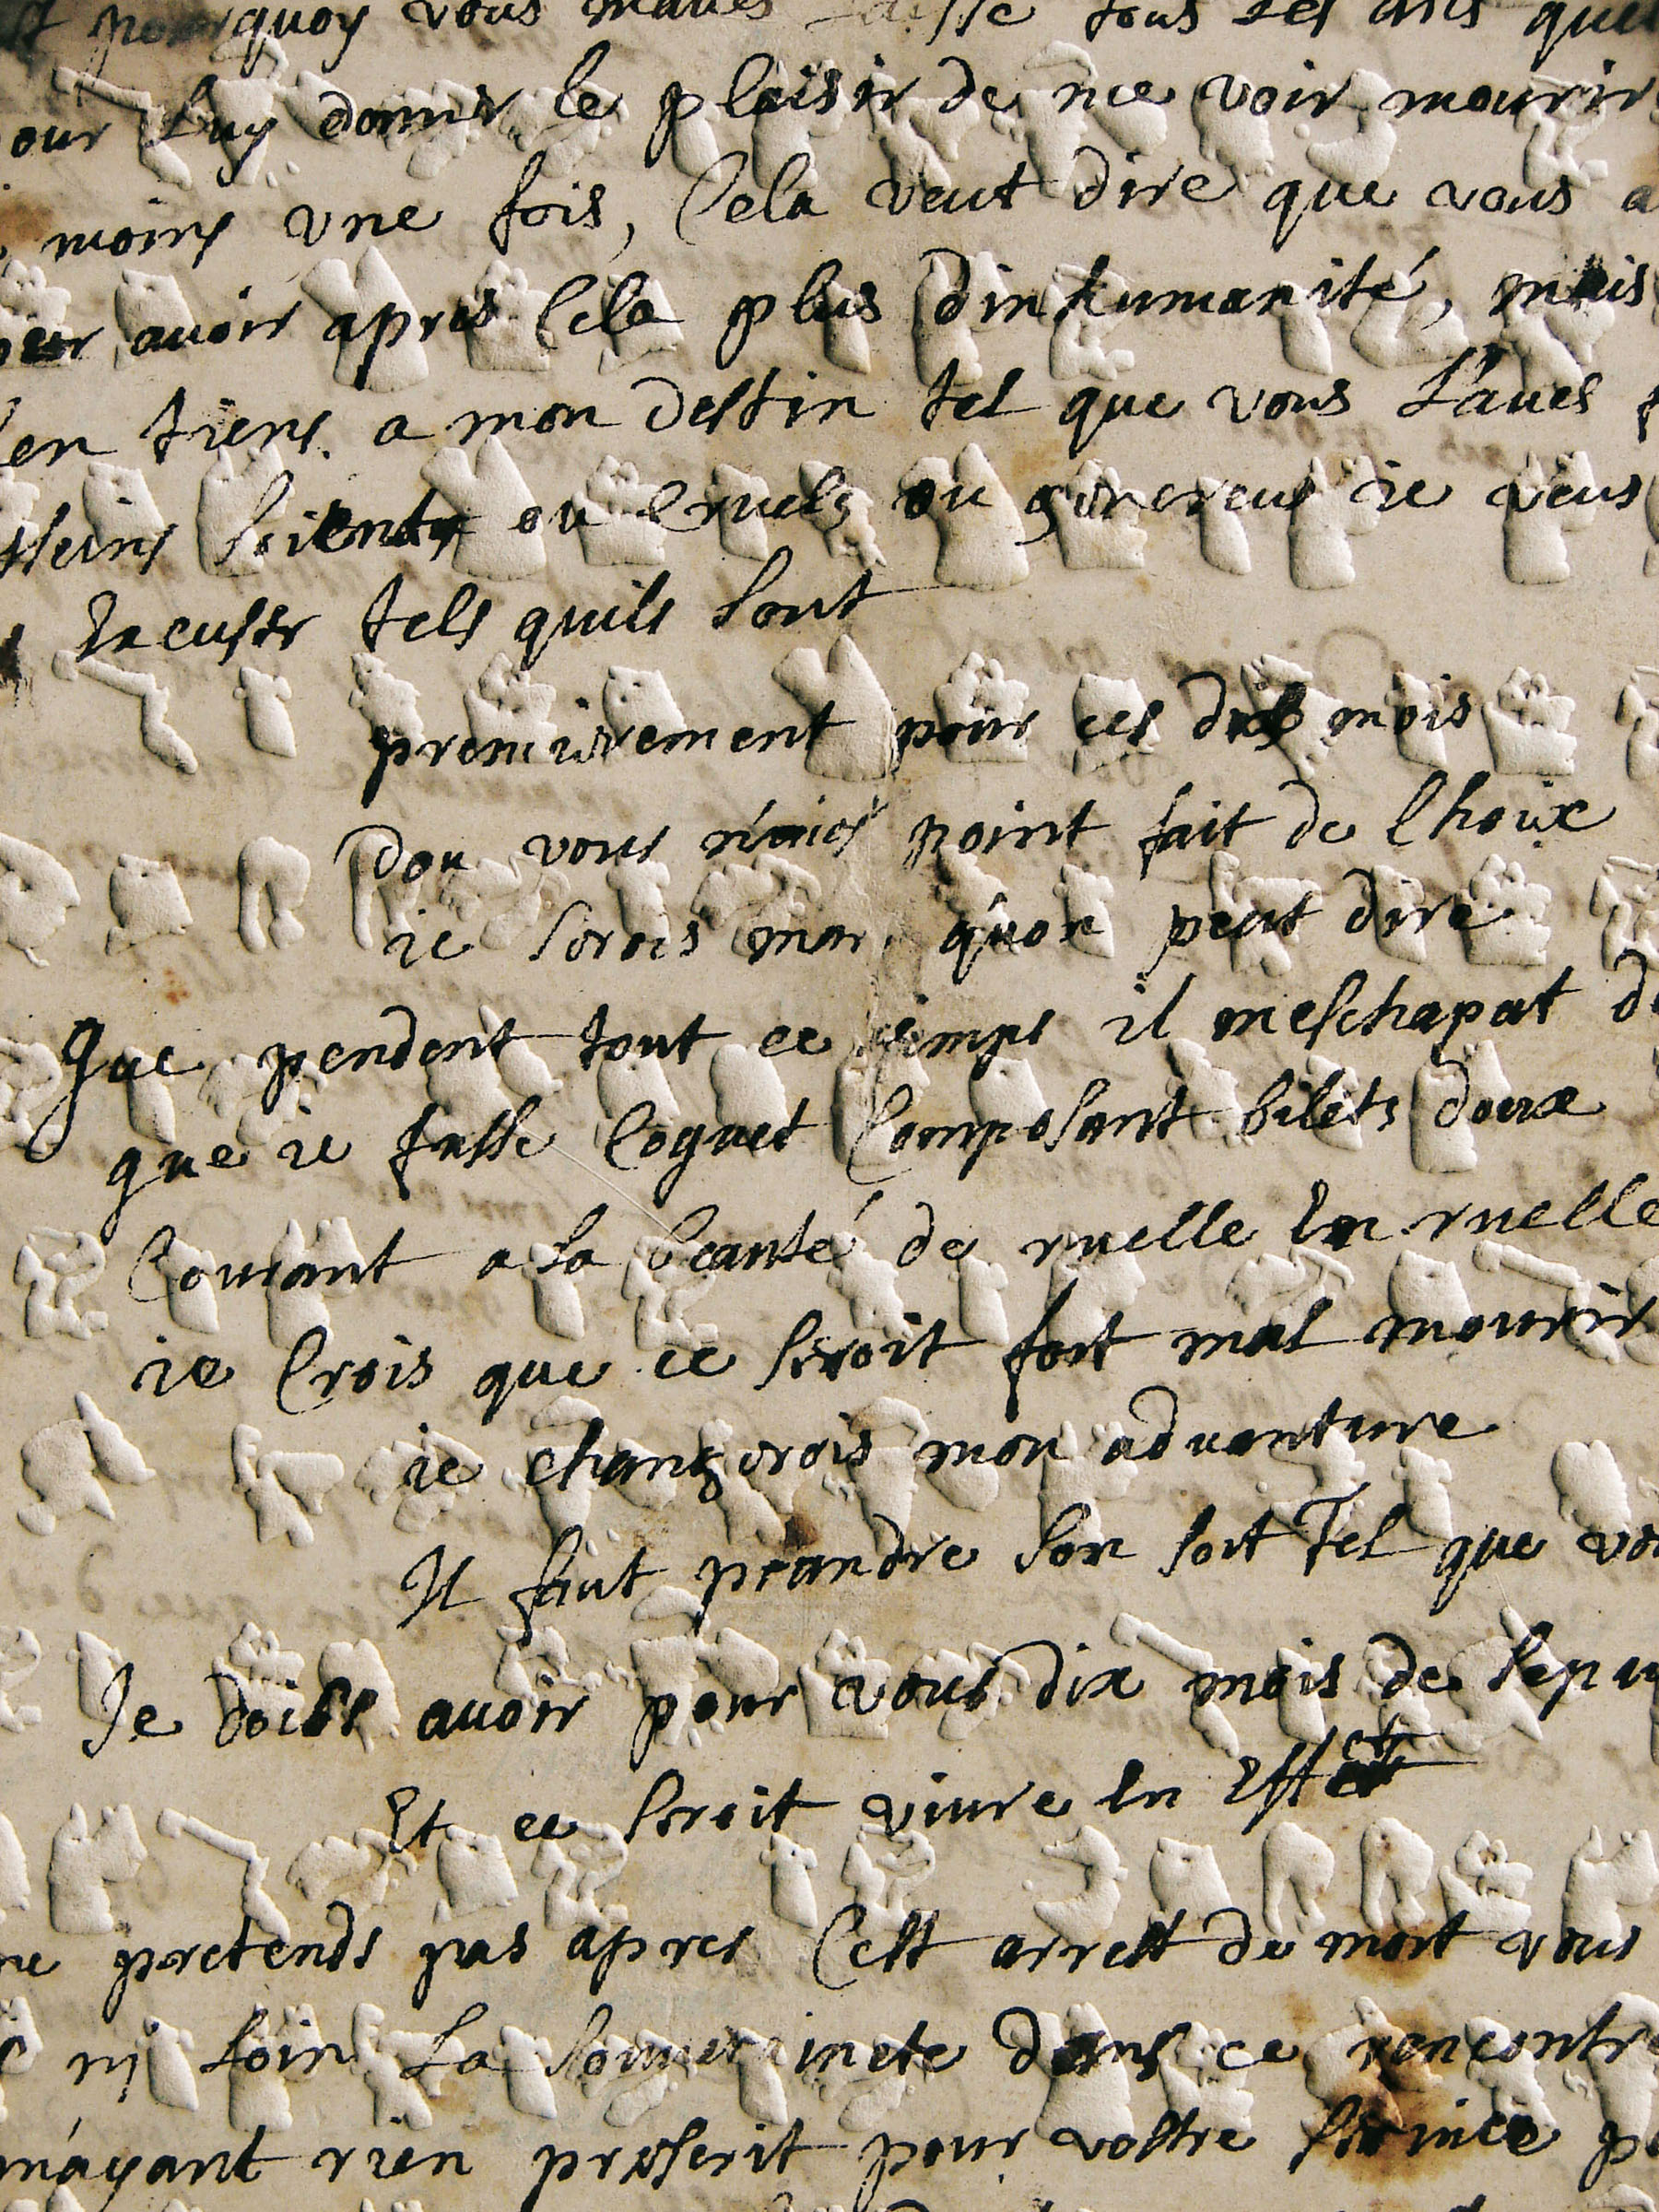 pourquoy vous maués laisse tous les
our luy donner le plaisir de me voir mourir
moins vne fois, Cela veut dire que vous a
avoir apres Cela plus dinhumanité, mais
en tiens a mon destin tel que vous L'aues
sseins soient ou Cruels ou genereus ie veus
Excuser tels quils sont
premierement pour ces dix mois
Dou vous n'aues point fait de Choix
ie serois mor quon peut dire
Que pendent tout ce temps il meschapat d
que ie fusse Coquet Composant bilets doux
Courant a la beauté de ruelle En ruelle
ie Crois que ce seroit fort mal mourir
ie changerois mon aduanture
Il faut prandre son sort Tel que vo
Je dois avoir pour vous dix mois de sepu
Et ce seroit viure En Effet
ne pretends pas apres Cest arrest de mort vous
ny loin La souuerainete dans ce rencontre
n'ayant rien prescrit pour vostre